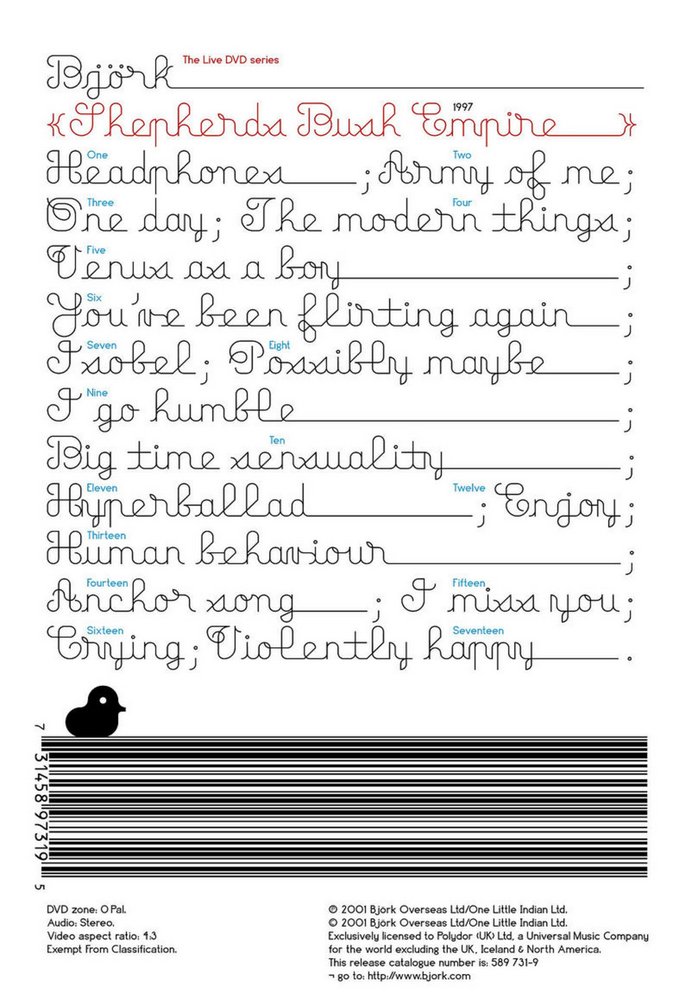 Björk The Live DVD series
{Shepherds Bush Empire 1997}
One Two
Headphones; Army of me;
Three Four
One day; The modern things;
Five
Venus as a boy;
Six
You've been flirting again;
Seven Eight
Isobel; Possibly maybe;
Nine
I go humble;
Ten
Big time sensuality;
Eleven Twelve
Hyperballad; Enjoy;
Thirteen
Human behaviour;
Fourteen Fifteen
Anchor song; I miss you;
Sixteen Seventeen
Crying; Violently happy.
7 31458 97319 5
DVD zone: 0 Pal.
Audio: Stereo.
Video aspect ratio: 4:3
Exempt From Classification.
℗ 2001 Björk Overseas Ltd/One Little Indian Ltd.
© 2001 Björk Overseas Ltd/One Little Indian Ltd.
Exclusively licensed to Polydor (UK) Ltd, a Universal Music Company
for the world excluding the UK, Iceland & North America.
This release catalogue number is: 589 731-9
¬ go to: http://www.bjork.com